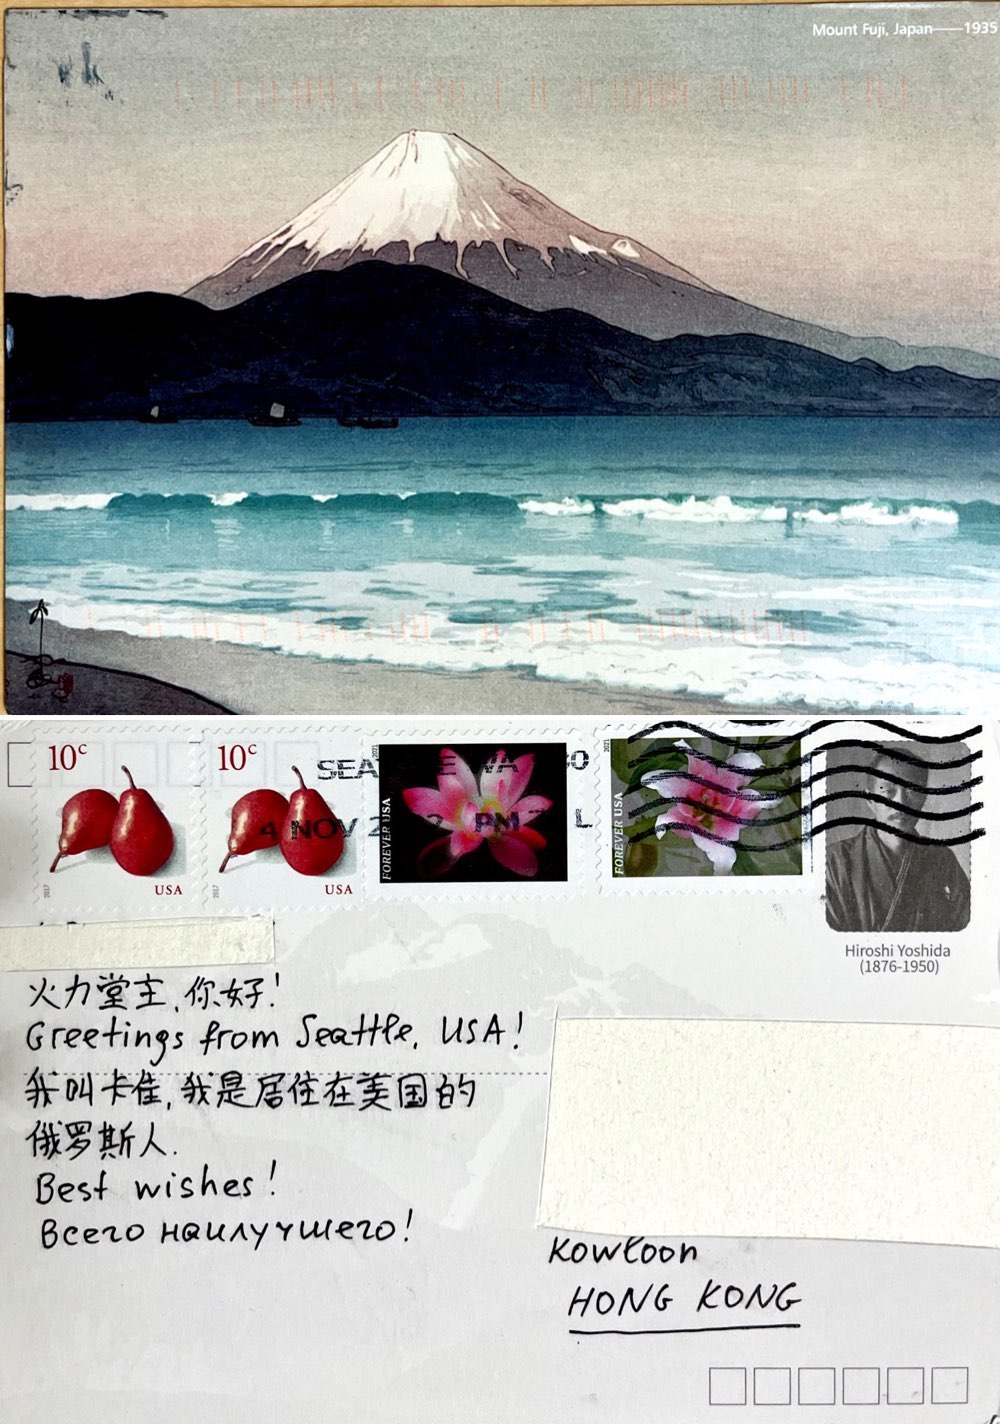 Mount Fuji, Japan——1935
10c
USA
2017
10c
USA
2017
FOREVER USA
2021
FOREVER USA
2021
4 NOV 2
PM
L
Hiroshi Yoshida
(1876-1950)
火力堂主,你好!
Greetings from Seattle, USA!
我叫卡佳,我是居住在美国的
俄罗斯人.
Best wishes!
Всего наилучшего!
Kowloon
HONG KONG